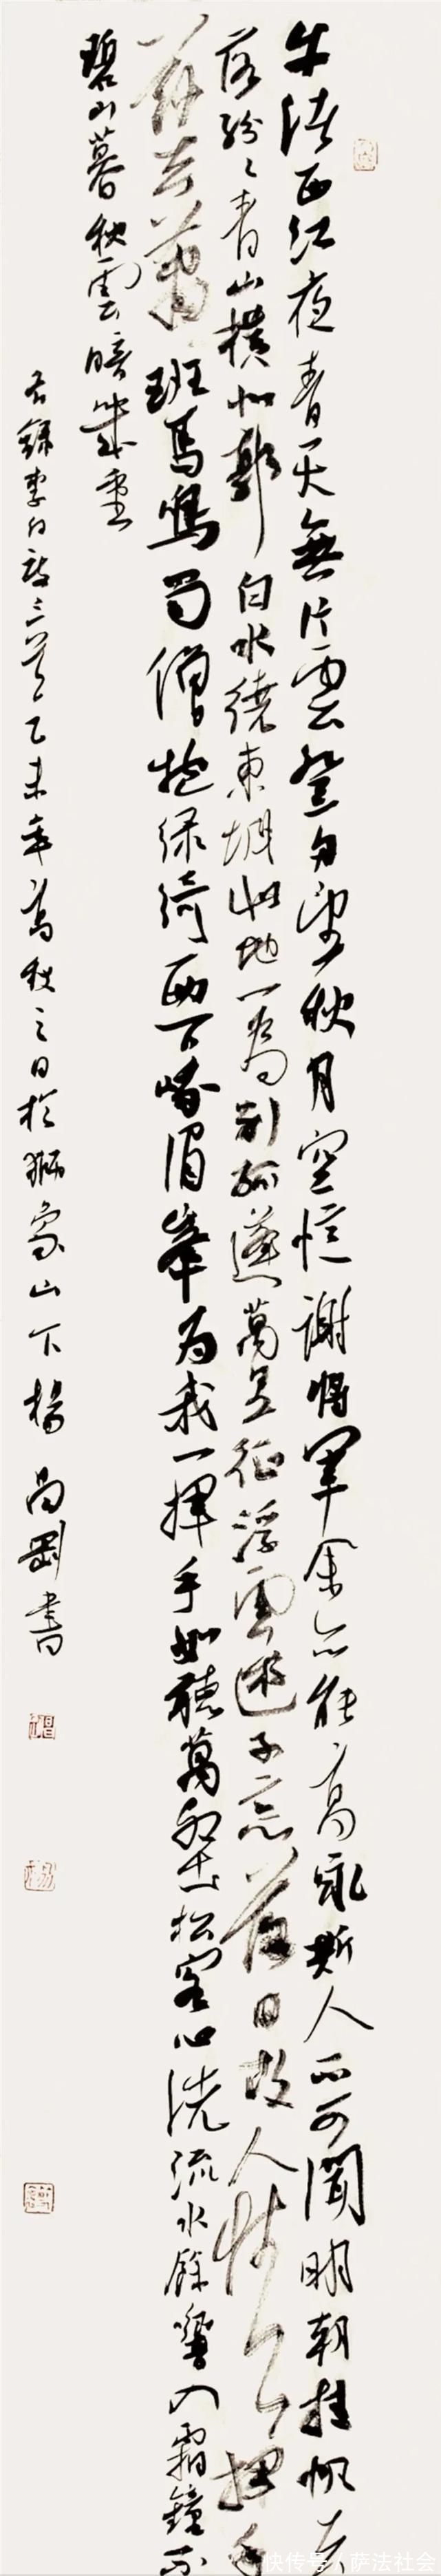 牛渚西江夜青天無片雲登舟望秋月空憶謝將軍余亦能高詠斯人不可聞明朝挂帆去
落紛々青山橫北郭白水繞東城此地一為別孤蓬萬里征浮雲遊子意落日故人情揮手
茲去蕭班馬鳴蜀僧抱綠綺西下峨眉峰為我一揮手如聽萬壑松客心洗流水餘響入霜鐘不
碧山暮秋雲暗幾重
右錄李白詩三首乙未年
秋之日於獅象山下楊
書
快传号/萨法社会